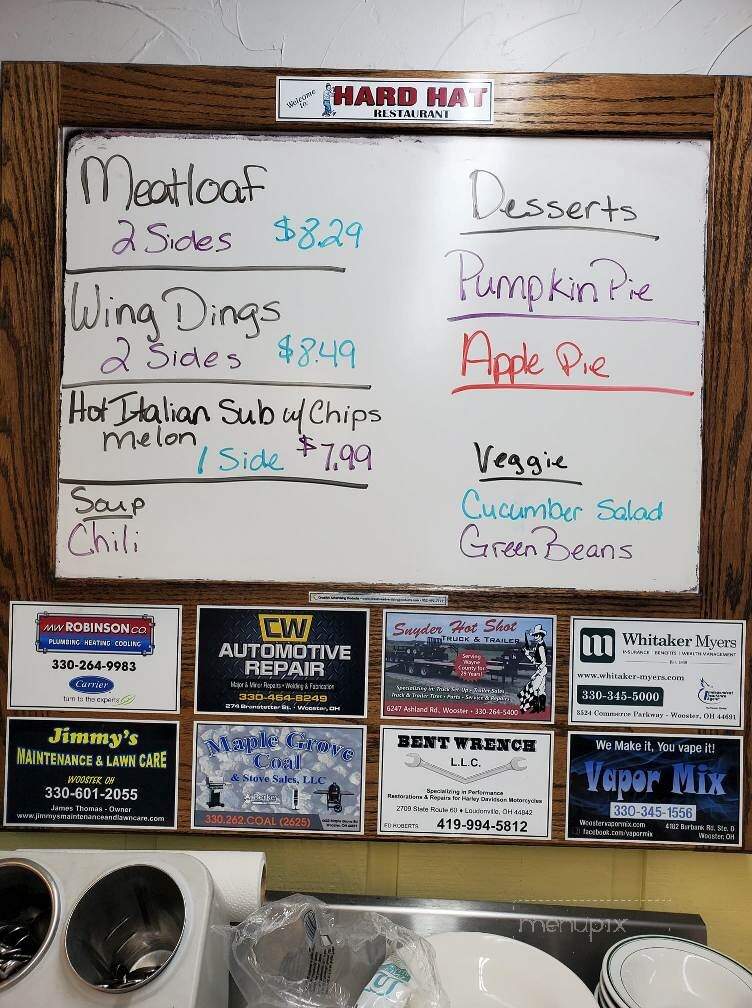 Welcome to:
HARD HAT
RESTAURANT
Meatloaf
2 Sides $8.29
Wing Dings
2 Sides $8.49
Hot Italian Sub w/ Chips
melon
1 Side $7.99
Soup
Chili
Desserts
Pumpkin Pie
Apple Pie
Veggie
Cucumber Salad
Green Beans
MW ROBINSON CO.
PLUMBING HEATING COOLING
330-264-9983
Carrier
turn to the experts
CW
AUTOMOTIVE
REPAIR
Major & Minor Repairs • Welding & Fabrication
330-464-8249
274 Branstetter St. • Wooster, OH
Snyder Hot Shot
TRUCK & TRAILER
Serving
Wayne
County for
29 Years!
Specializing in: Truck Set-Up • Trailer Sales
Truck & Trailer Tires • Parts • Service & Repairs
6247 Ashland Rd., Wooster • 330-264-5400
m Whitaker Myers
INSURANCE | BENEFITS | WEALTH MANAGEMENT
www.whitaker-myers.com
330-345-5000
3524 Commerce Parkway - Wooster, OH 44691
Jimmy's
MAINTENANCE & LAWN CARE
WOOSTER, OH
330-601-2055
James Thomas - Owner
www.jimmysmaintenanceandlawncare.com
Maple Grove
Coal
& Stove Sales, LLC
330.262.COAL (2625)
BENT WRENCH
L.L.C.
Specializing in Performance
Restorations & Repairs for Harley Davidson Motorcycles
2709 State Route 60 • Loudonville, OH 44842
ED ROBERTS 419-994-5812
We Make it, You vape it!
Vapor Mix
330-345-1556
Woostervapormix.com
facebook.com/vapormix
4162 Burbank Rd, Ste. D
Wooster, OH
menupix